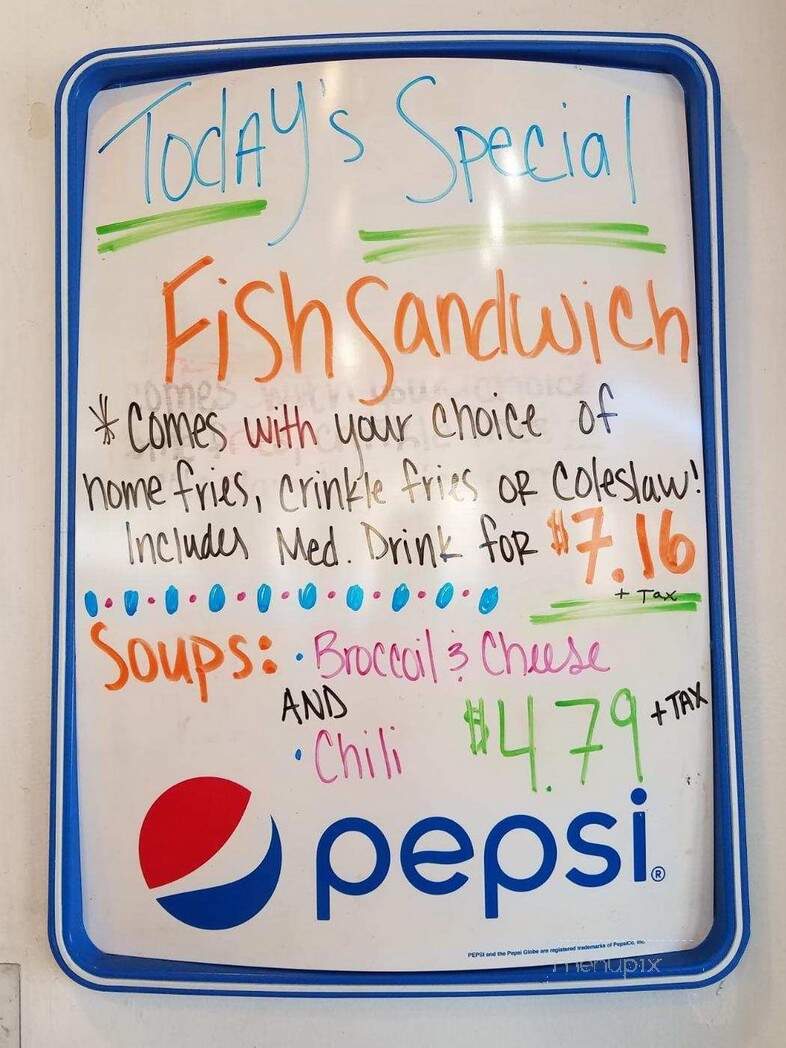 TodAy's Special
Fish Sandwich
*Comes with your choice of
home fries, crinkle fries OR Coleslaw!
Includes Med. Drink foR $7.16
+ Tax
Soups: • Broccoil & Cheese
AND
• Chili $4.79 + TAX
pepsi®
PEPSI and the Pepsi Globe are registered trademarks of PepsiCo, Inc.
menupix